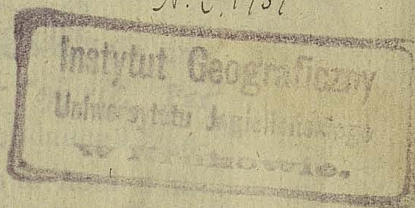 Instytut Geograficzny
Uniwersytetu Jagiellońskiego
w Krakowie.